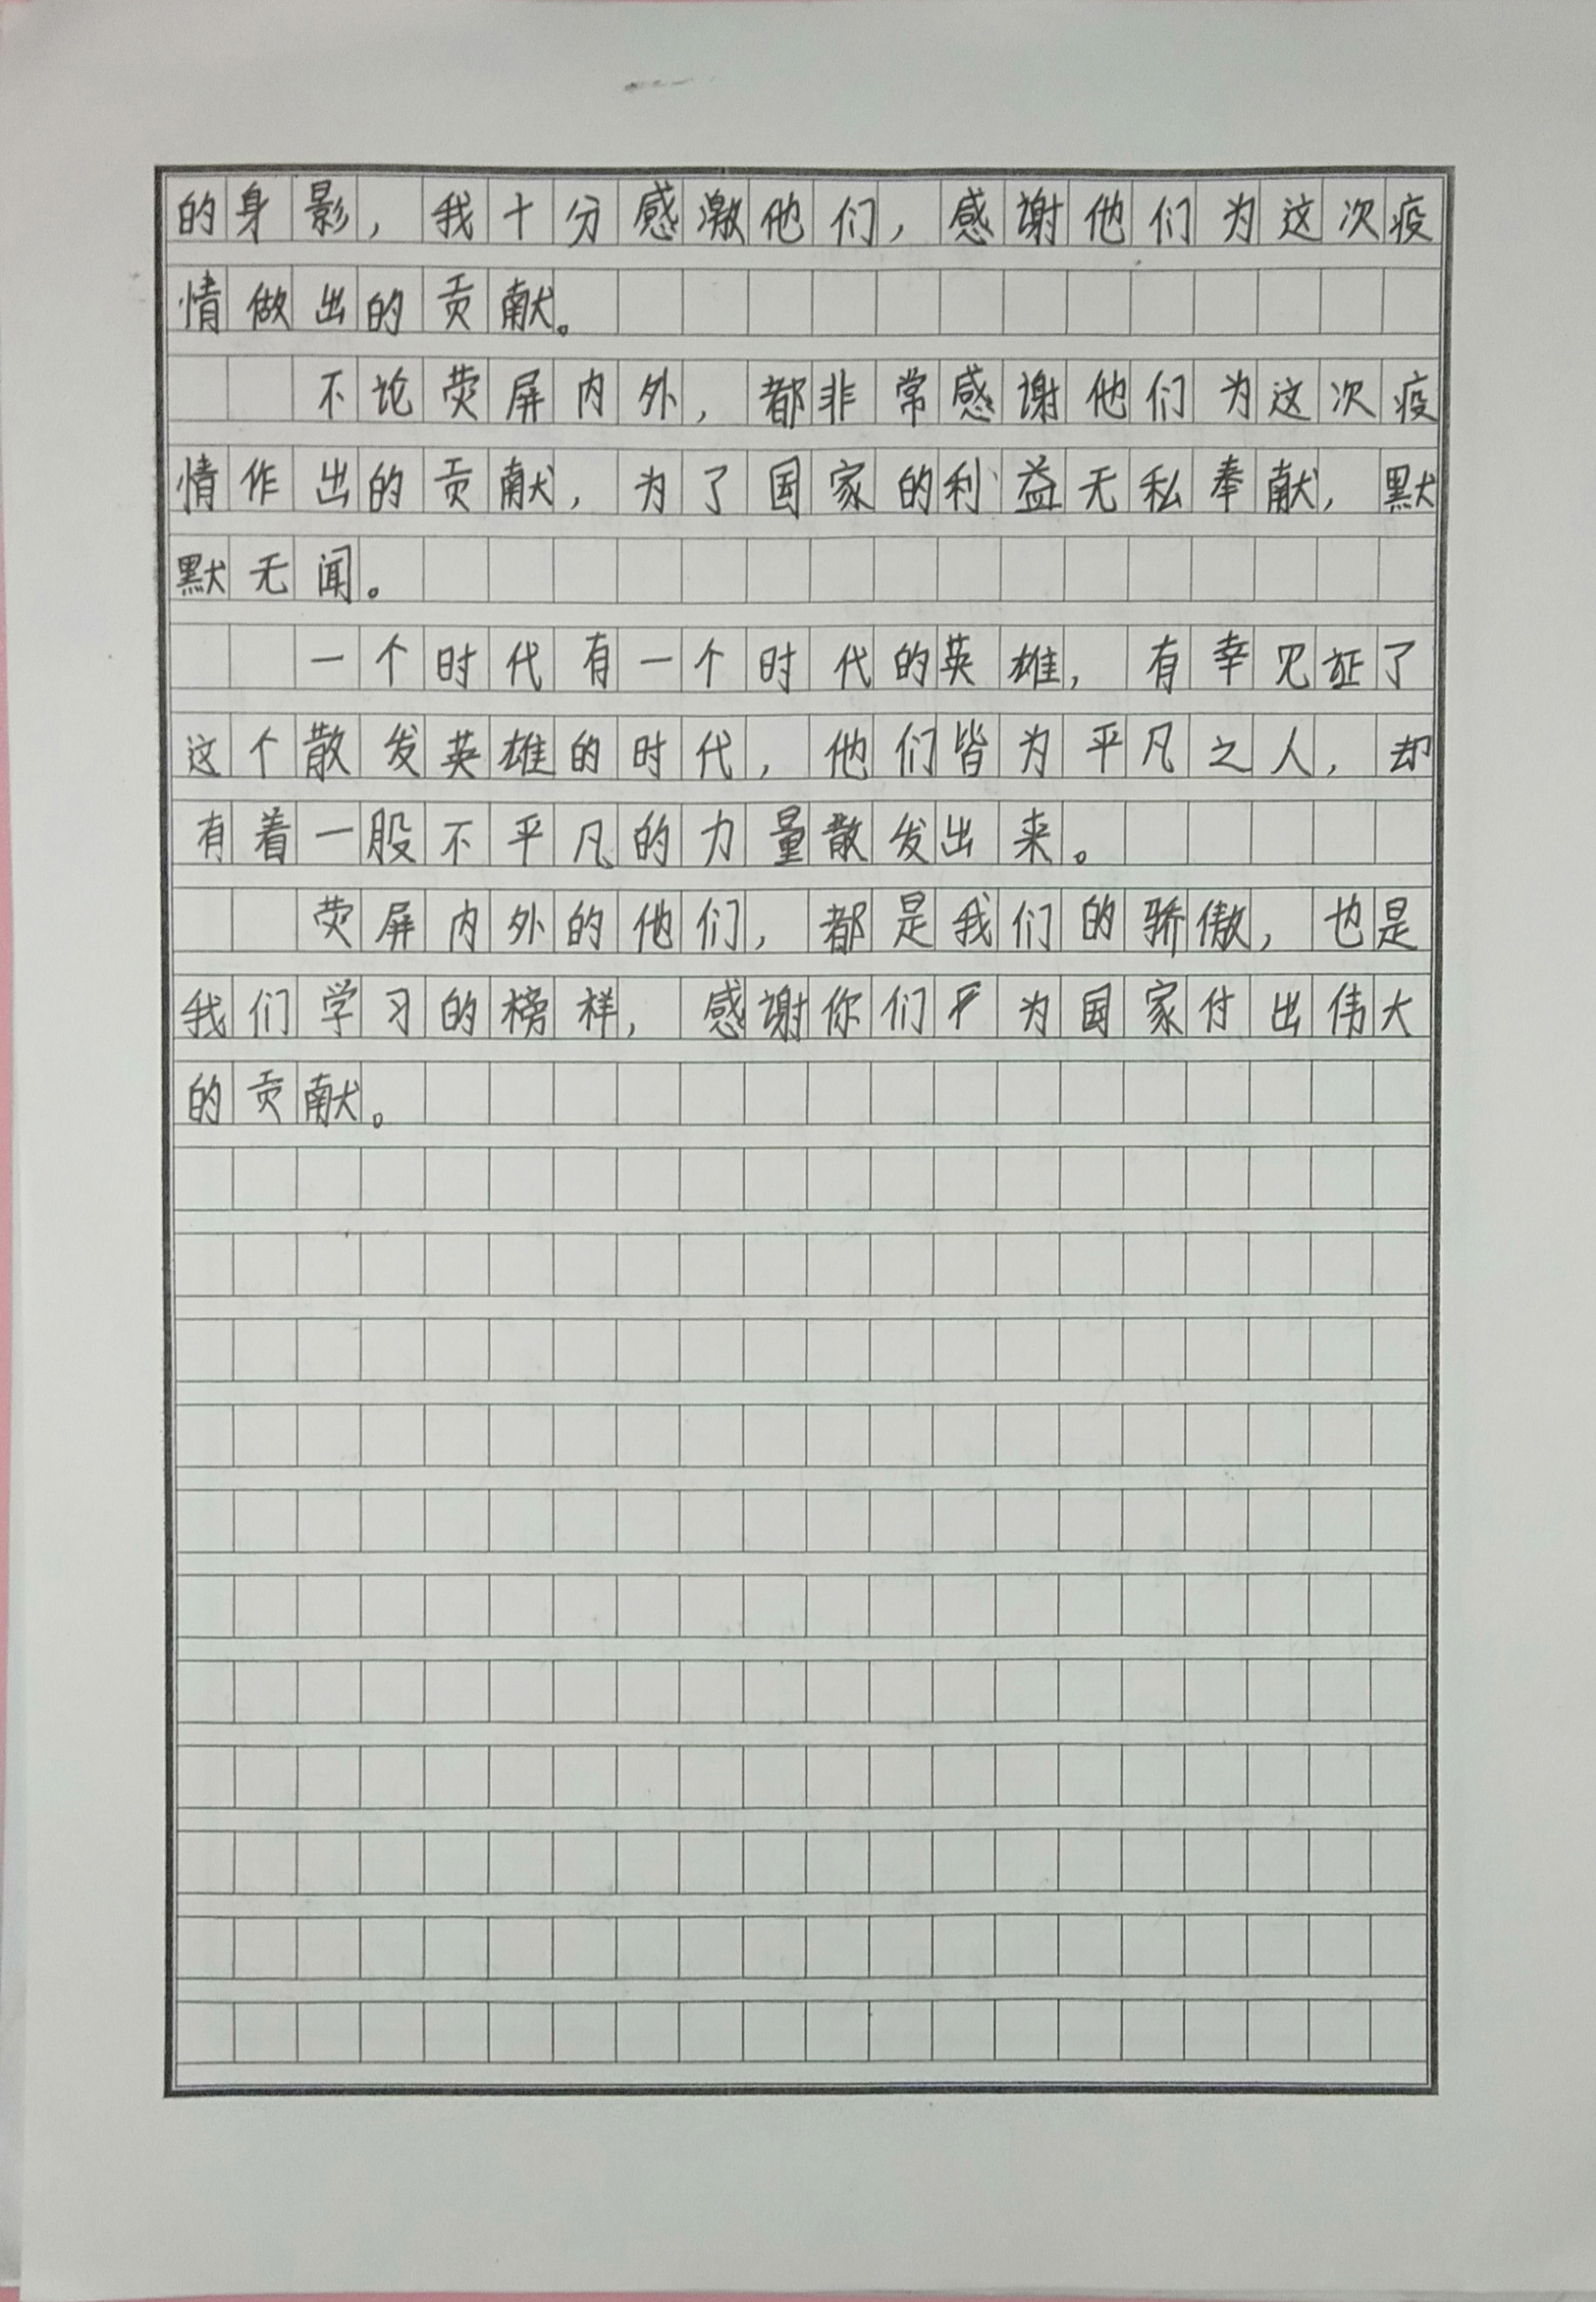 的身影，我十分感激他们，感谢他们为这次疫
情做出的贡献。
不论荧屏内外，都非常感谢他们为这次疫
情作出的贡献，为了国家的利益无私奉献，默
默无闻。
一个时代有一个时代的英雄，有幸见证了
这个散发英雄的时代，他们皆为平凡之人，却
有着一股不平凡的力量散发出来。
荧屏内外的他们，都是我们的骄傲，也是
我们学习的榜样，感谢你们为国家付出伟大
的贡献。